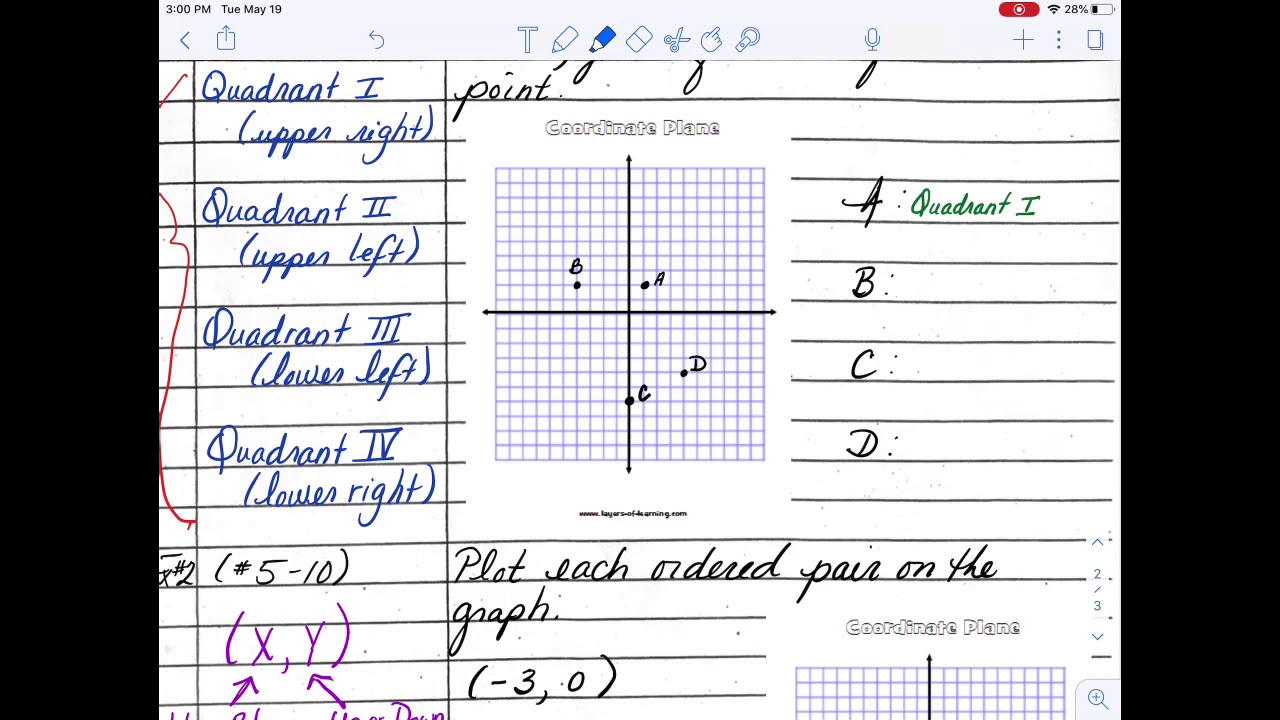 3:00 PM Tue May 19
28%
Quadrant I
(upper right)
Quadrant II
(upper left)
Quadrant III
(lower left)
Quadrant IV
(lower right)
point.
Coordinate Plane
B
A
D
C
www.layers-of-learning.com
A: Quadrant I
B:
C:
D:
#2 (#5-10)
(X, Y)
Plot each ordered pair on the
graph.
(-3, 0)
Coordinate Plane
2
/
3